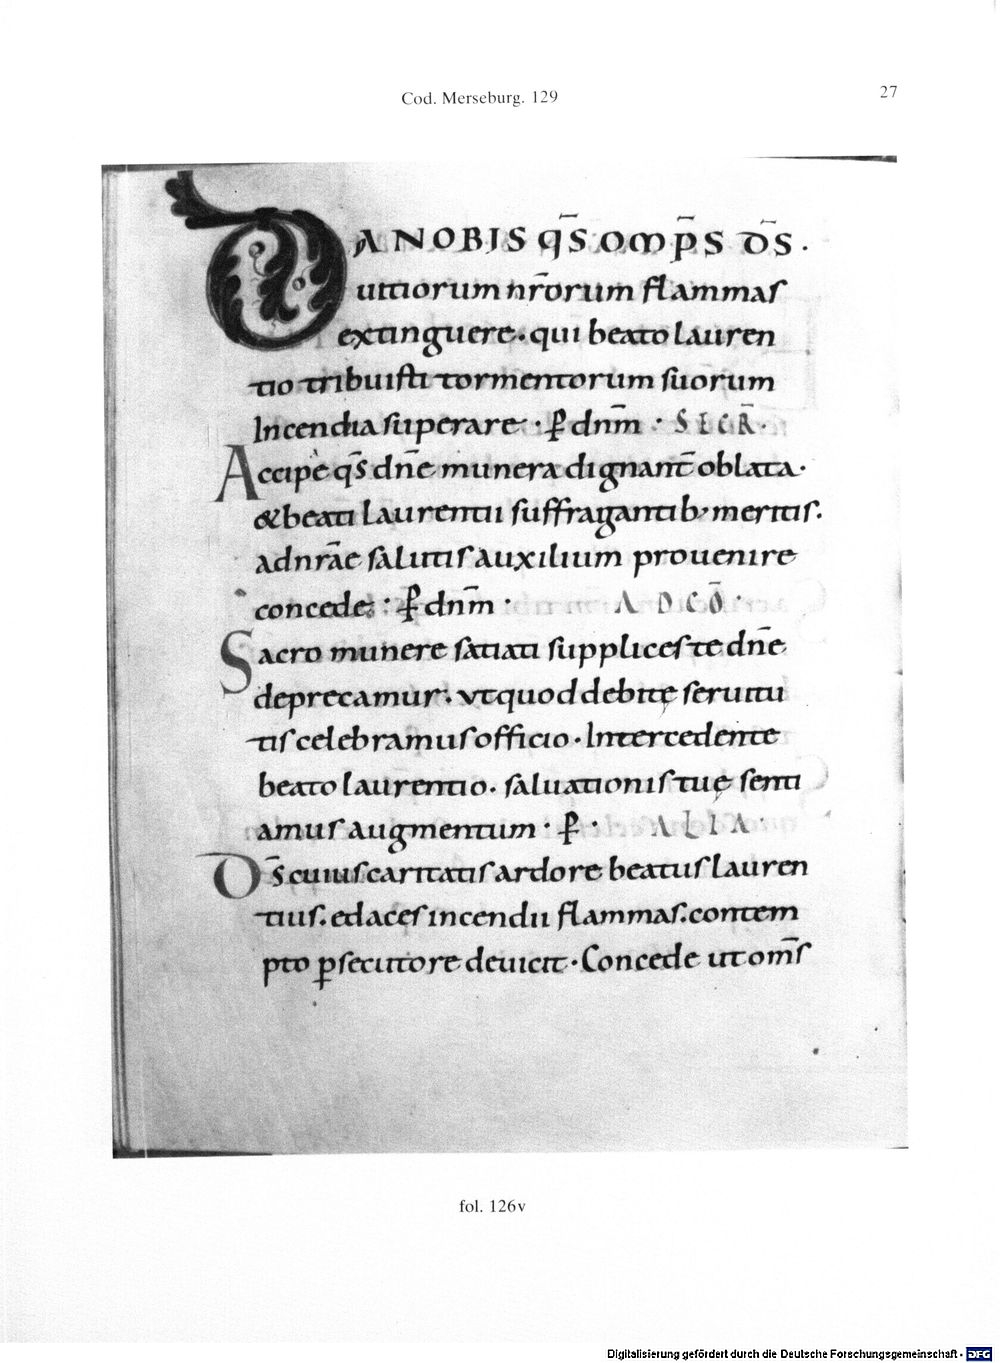 Cod. Merseburg. 129
27
DA NOBIS q̄s OMP̄S D̄S.
uitiorum nr̄orum flammas
extinguere. qui beato lauren
tio tribuisti tormentorum suorum
Incendia superare. ꝑ dnm̄ · SECR̄.
Accipe q̄s dn̄e munera dignant̄ oblata.
& beati laurentii suffragantib; meritis.
ad nr̄ae salutis auxilium prouenire
concede: ꝑ dnm̄ · AD CŌ.
Sacro munere satiati supplices te dn̄e
deprecamur. ut quod debitę seruitu
tis celebramus officio. Intercedente
beato laurentio. saluationis tuę senti
amus augmentum · ꝑ · ALIA.
D̄s cuius caritatis ardore beatus lauren
tius. edaces incendii flammas. contem
pto ꝑsecutore deuicit. Concede ut om̄s
fol. 126v
Digitalisierung gefördert durch die Deutsche Forschungsgemeinschaft - DFG